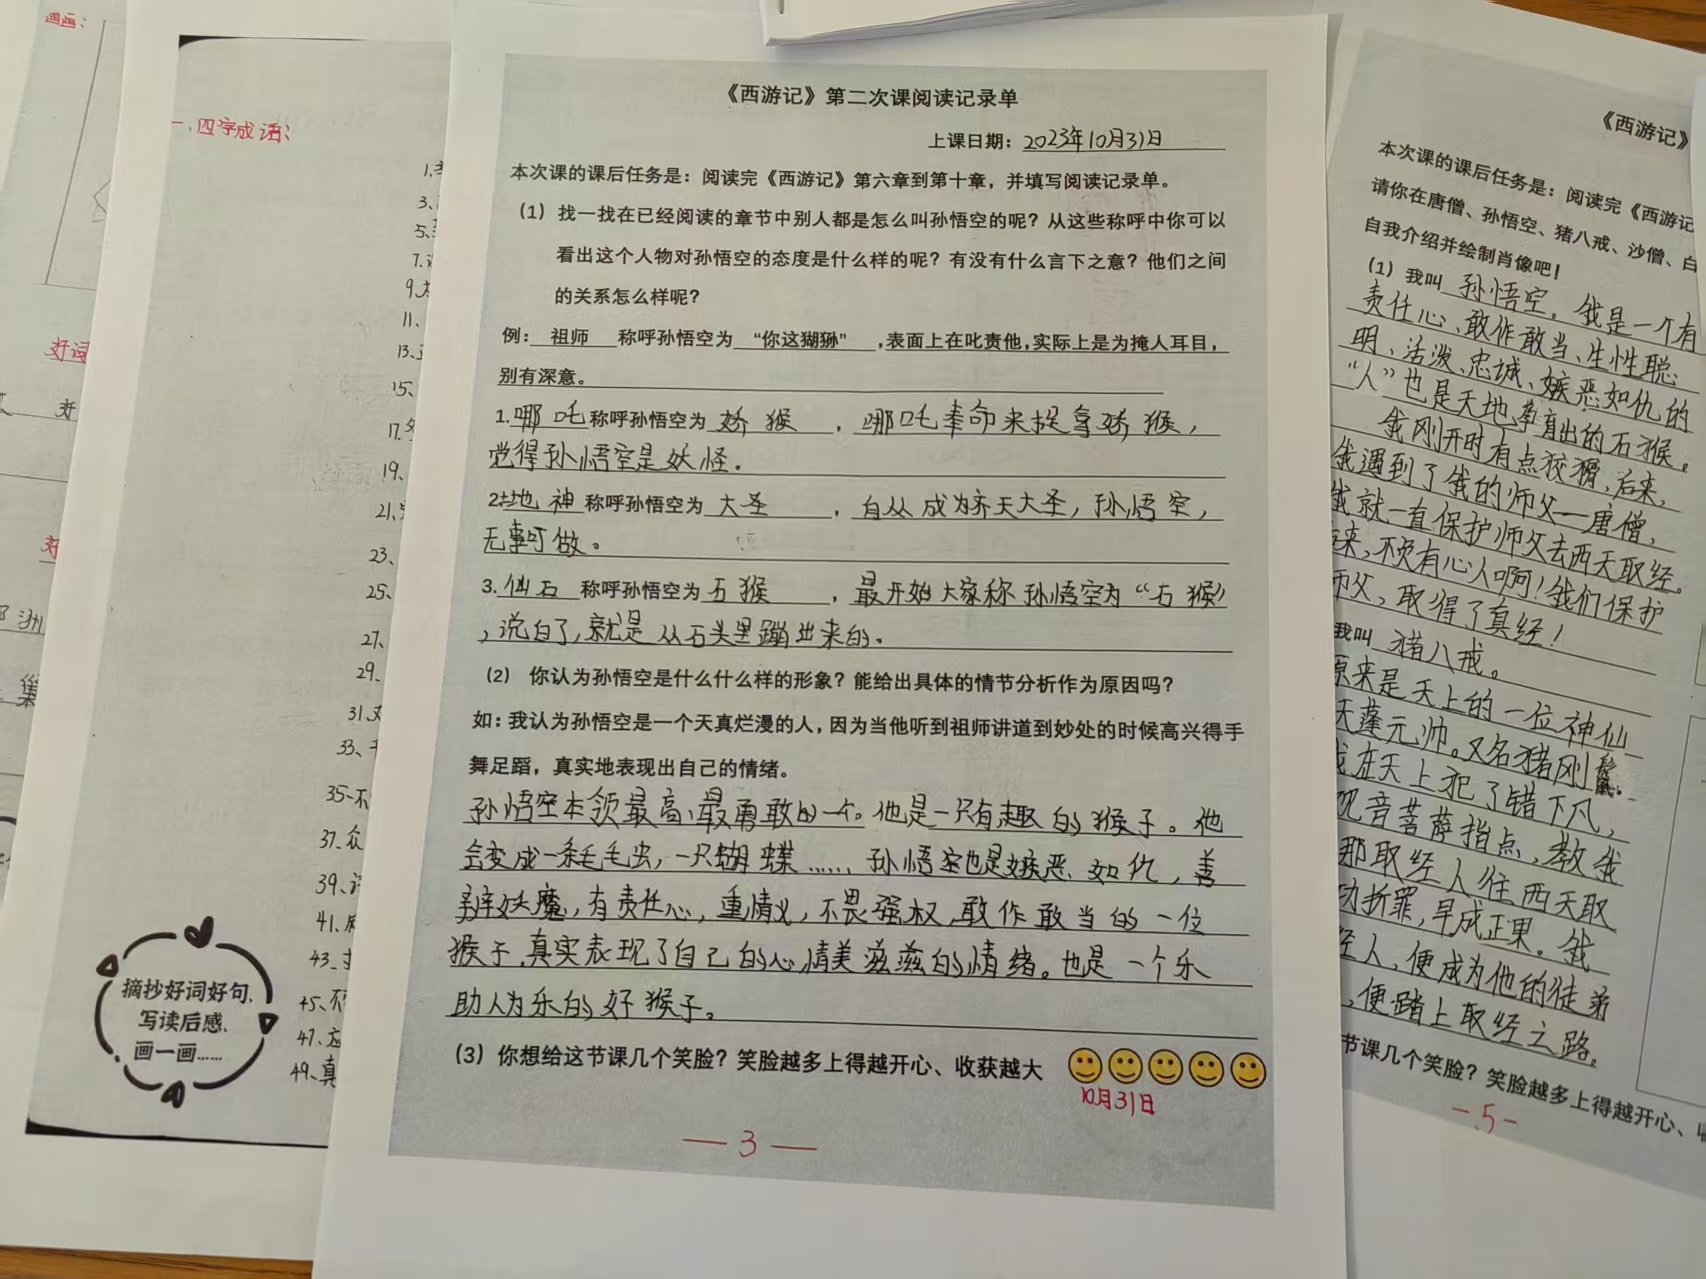 画画：
一、四字成语：
1.
3.
5.
7.
9.
11.
13.
15、
17.
19、
21、
23、
25、
27、
29、
31、
33、
35
37、众
39、
41、
43、
45、不
47、应
49、真
好词
好
洲
集
摘抄好词好句、
写读后感、
画一画……
《西游记》第二次课阅读记录单
上课日期：2023年10月31日
本次课的课后任务是：阅读完《西游记》第六章到第十章，并填写阅读记录单。
（1）找一找在已经阅读的章节中别人都是怎么叫孙悟空的呢？从这些称呼中你可以
看出这个人物对孙悟空的态度是什么样的呢？有没有什么言下之意？他们之间
的关系怎么样呢？
例：祖师 称呼孙悟空为 “你这猢狲” ，表面上在叱责他，实际上是为掩人耳目，
别有深意。
1.哪吒称呼孙悟空为 妖猴 ，哪吒奉命来捉拿妖猴，
觉得孙悟空是妖怪。
2.地神 称呼孙悟空为 大圣 ，自从成为齐天大圣，孙悟空，
无事可做。
3.仙石 称呼孙悟空为 石猴 ，最开始大家称孙悟空为“石猴”
，说白了，就是从石头里蹦出来的。
（2） 你认为孙悟空是什么什么样的形象？能给出具体的情节分析作为原因吗？
如：我认为孙悟空是一个天真烂漫的人，因为当他听到祖师讲道到妙处的时候高兴得手
舞足蹈，真实地表现出自己的情绪。
孙悟空本领最高、最勇敢的一个。他是一只有趣的猴子。他
会变成一条毛毛虫，一只蝴蝶…… 孙悟空也是嫉恶如仇，善
辨妖魔，有责任心，重情义，不畏强权，敢作敢当的一位
猴子，真实表现了自己的心情美滋滋的情绪。也是一个乐
助人为乐的好猴子。
（3）你想给这节课几个笑脸？笑脸越多上得越开心、收获越大
10月31日
—3—
《西游记》
本次课的课后任务是：阅读完《西游记
请你在唐僧、孙悟空、猪八戒、沙僧、白
自我介绍并绘制肖像吧！
（1）我叫 孙悟空。我是一个有
责任心、敢作敢当、生性聪
明、活泼、忠诚、嫉恶如仇的
“人”也是天地孕育出的石猴。
我刚开时有点狡猾，后来，
我遇到了我的师父——唐僧，
我就一直保护师父去西天取经。
来，不负有心人啊！我们保护
师父，取得了真经！
我叫 猪八戒。
原来是天上的一位神仙
天蓬元帅。又名猪刚鬣。
我在天上犯了错下凡，
观音菩萨指点，教我
那取经人往西天取
功折罪，早成正果。我
经人，便成为他的徒弟
，便踏上取经之路。
节课几个笑脸？笑脸越多上得越开心、收
-5-